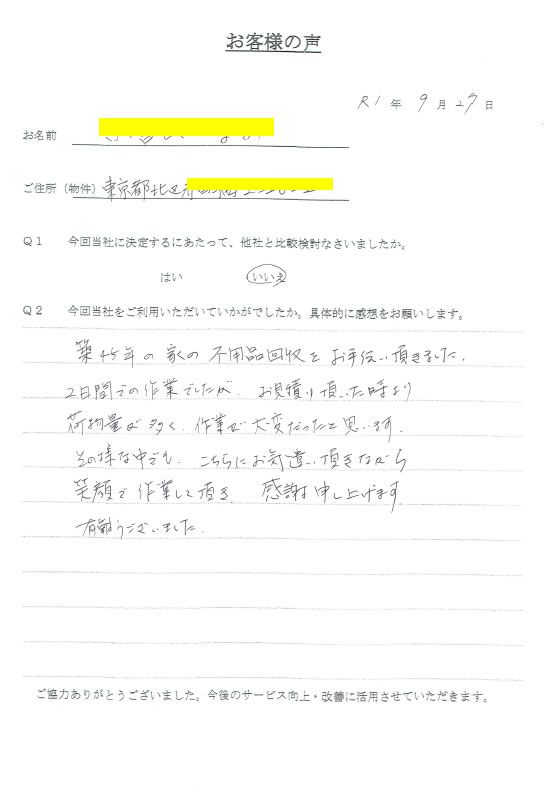 お客様の声
R1年9月27日
お名前
ご住所（物件）東京都北区
Q1 今回当社に決定するにあたって、他社と比較検討なさいましたか。
はい いいえ
Q2 今回当社をご利用いただいていかがでしたか。具体的に感想をお願いします。
築45年の家の不用品回収をお手伝い頂きました。
2日間での作業でしたが、お見積り頂いた時より
荷物量が多く、作業が大変だったと思います。
その様な中でも、こちらにお気遣い頂きながら
笑顔で作業して頂き、感謝申し上げます
有難うございました。
ご協力ありがとうございました。今後のサービス向上・改善に活用させていただきます。